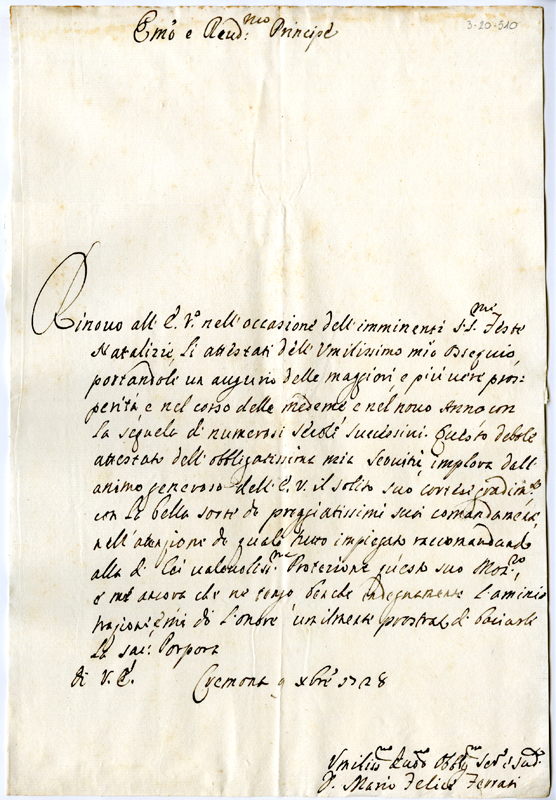 3-20-510
Emo e Reud.mo Principe
Rinovo all' E. V. nell'occasione dell'imminenti S.S.me Feste
Natalizie, li attestati dell' Vmilissimo mio Ossequio,
portandole un augurio delle maggiori, e più vere pros=
perità, e nel corso delle medeme, e nel novo Anno con
la sequela di numerosi secoli successivi. Questo debole
attestato dell'obbligatissima mia servitù, implora dall'
animo generoso dell' E. V. il solito suo cortese gradim.to
con la bella sorte de preggiatissimi suoi comandamenti,
nell'attenzione de quali tutto impiegato raccomandando
alla di Lei valevoliss.ma Protezione questo suo Mon.ro,
e me ancora che ne tengo benche indegnamente l'aminis
trazione, mi dò l'onore umilmente prostrato di baciarle
la sac: Porpora
di V. E. Cremona 9 xbre 1728
Vmiliss.mo Deuo.mo Obblig.mo Ser.e e sud.
D. Mario Felice Ferrari